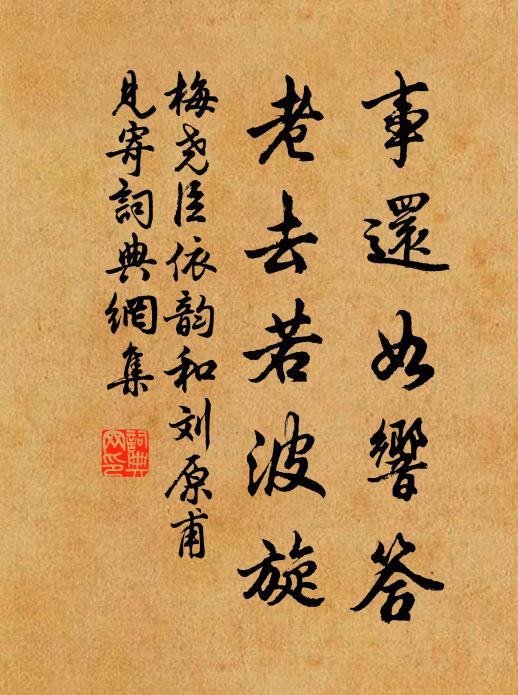 事還如響答
老去若波旋
梅尧臣依韵和刘原甫
見寄詞典網集
詞典
网印